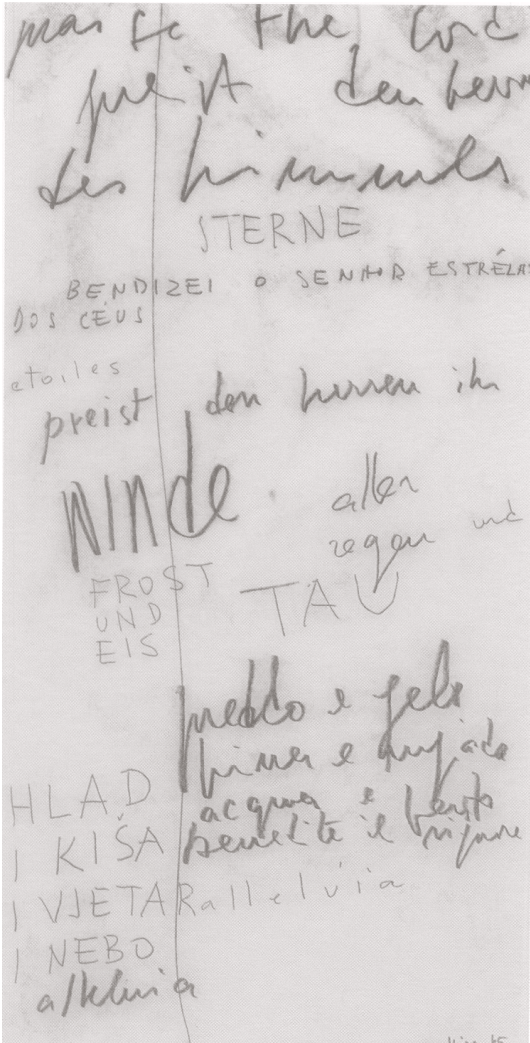 the Lord
preist den herrn
des himmels
STERNE
BENDIZEI O SENHOR ESTRÊLAS
DOS CÉUS
etoiles
preist den herren ihr
WINDE.
aller
regen und
FROST
UND
EIS
TAU
freddo e gelo
acqua e
benedite il signore
HLAD
I KIŠA
I VJETAR alleluia
I NEBO
alleluia